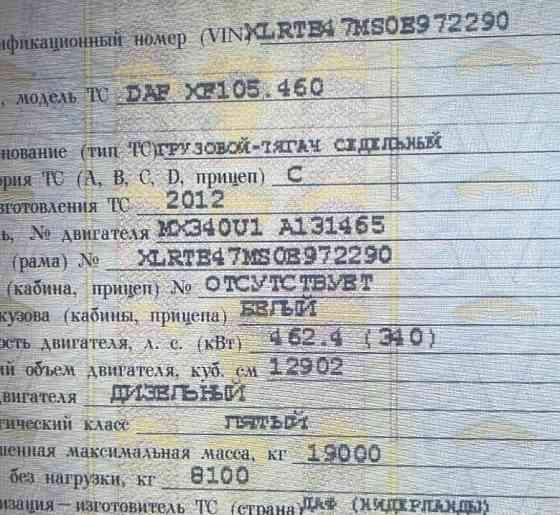 ификационный номер (VIN) XLRTE47MS0E972290
, модель ТС DAF XF105.460
нование (тип ТС) ГРУЗОВОЙ-ТЯГАЧ СЕДЕЛЬНЫЙ
ория ТС (А, В, С, D, прицеп) C
зготовления ТС 2012
ь, № двигателя MX340U1 A131465
(рама) № XLRTE47MS0E972290
(кабина, прицеп) № ОТСУТСТВУЕТ
кузова (кабины, прицепа) БЕЛЫЙ
ость двигателя, л. с. (кВт) 462.4 (340)
ий объем двигателя, куб. см 12902
двигателя ДИЗЕЛЬНЫЙ
гический класс ПЯТЫЙ
шенная максимальная масса, кг 19000
без нагрузки, кг 8100
изация—изготовитель ТС (страна) ДАФ (НИДЕРЛАНДЫ)